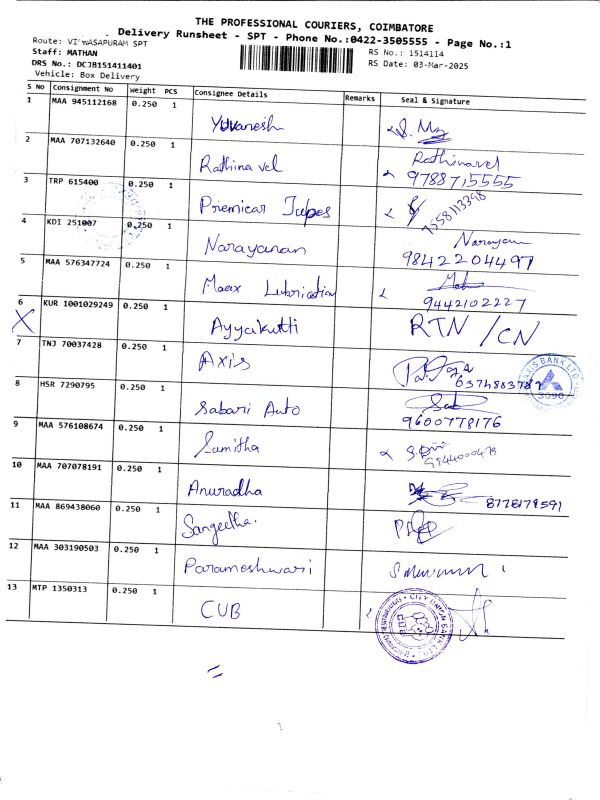 THE PROFESSIONAL COURIERS, COIMBATORE
Delivery Runsheet - SPT - Phone No.:0422-3505555 - Page No.:1
Route: VISWASAPURAM SPT RS No.: 1514114
Staff: MATHAN RS Date: 03-Mar-2025
DRS No.: DCJB151411401
Vehicle: Box Delivery
S No Consignment No Weight PCS Consignee Details Remarks Seal & Signature
1 MAA 945112168 0.250 1 Yuvanesh
2 MAA 707132640 0.250 1 Rathinavel Rathinavel
9788715555
3 TRP 615400 0.250 1 Premicar Tubes 7558113398
4 KDI 251007 0.250 1 Narayanan Narayanan
9842204497
5 MAA 576347724 0.250 1 Maax Lubrication
9442102227
6 KUR 1001029249 0.250 1 Ayyakutti RTN /CN
X
7 TNJ 70037428 0.250 1 Axis AXIS BANK LTD
8 HSR 7290795 0.250 1 Sabari Auto
9600778176
9 MAA 576108674 0.250 1 Sumitha
10 MAA 707078191 0.250 1 Anuradha 8778179591
11 MAA 869438060 0.250 1 Sangeetha.
12 MAA 303190503 0.250 1 Parameshwari
13 MTP 1350313 0.250 1 CUB CITY UNION BANK LTD
CUB